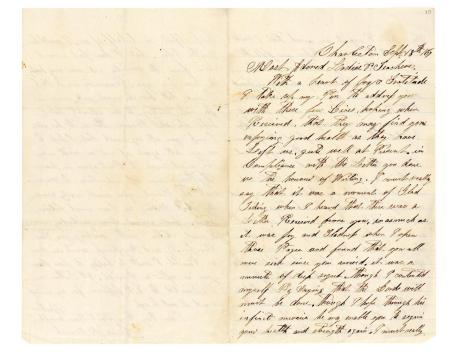 Charleston Sept 18th
Most Honored Ladies & Teachers.
With a heart of Joy & Gratitude
I take up my Pen to address you
with these few Lines, hoping when
Received, that they may find you
enjoying good health as they have
Left us, quite well at Present, in
Compliance with the Letter you done
us the honour of Writing. I must really
say that it was a moment of Glad
Tiding when I heard that there was a
Letter Received from you, inasmuch as
it was Joy and Gladness when I open
those Pages and found that you all
were sick since you arrived, it was a
minute of deep regret, though I contented
myself by saying that the Lords will
must be done, though I hope through his
infinite mercies he may enable you to regain
your health and strength again. I must really